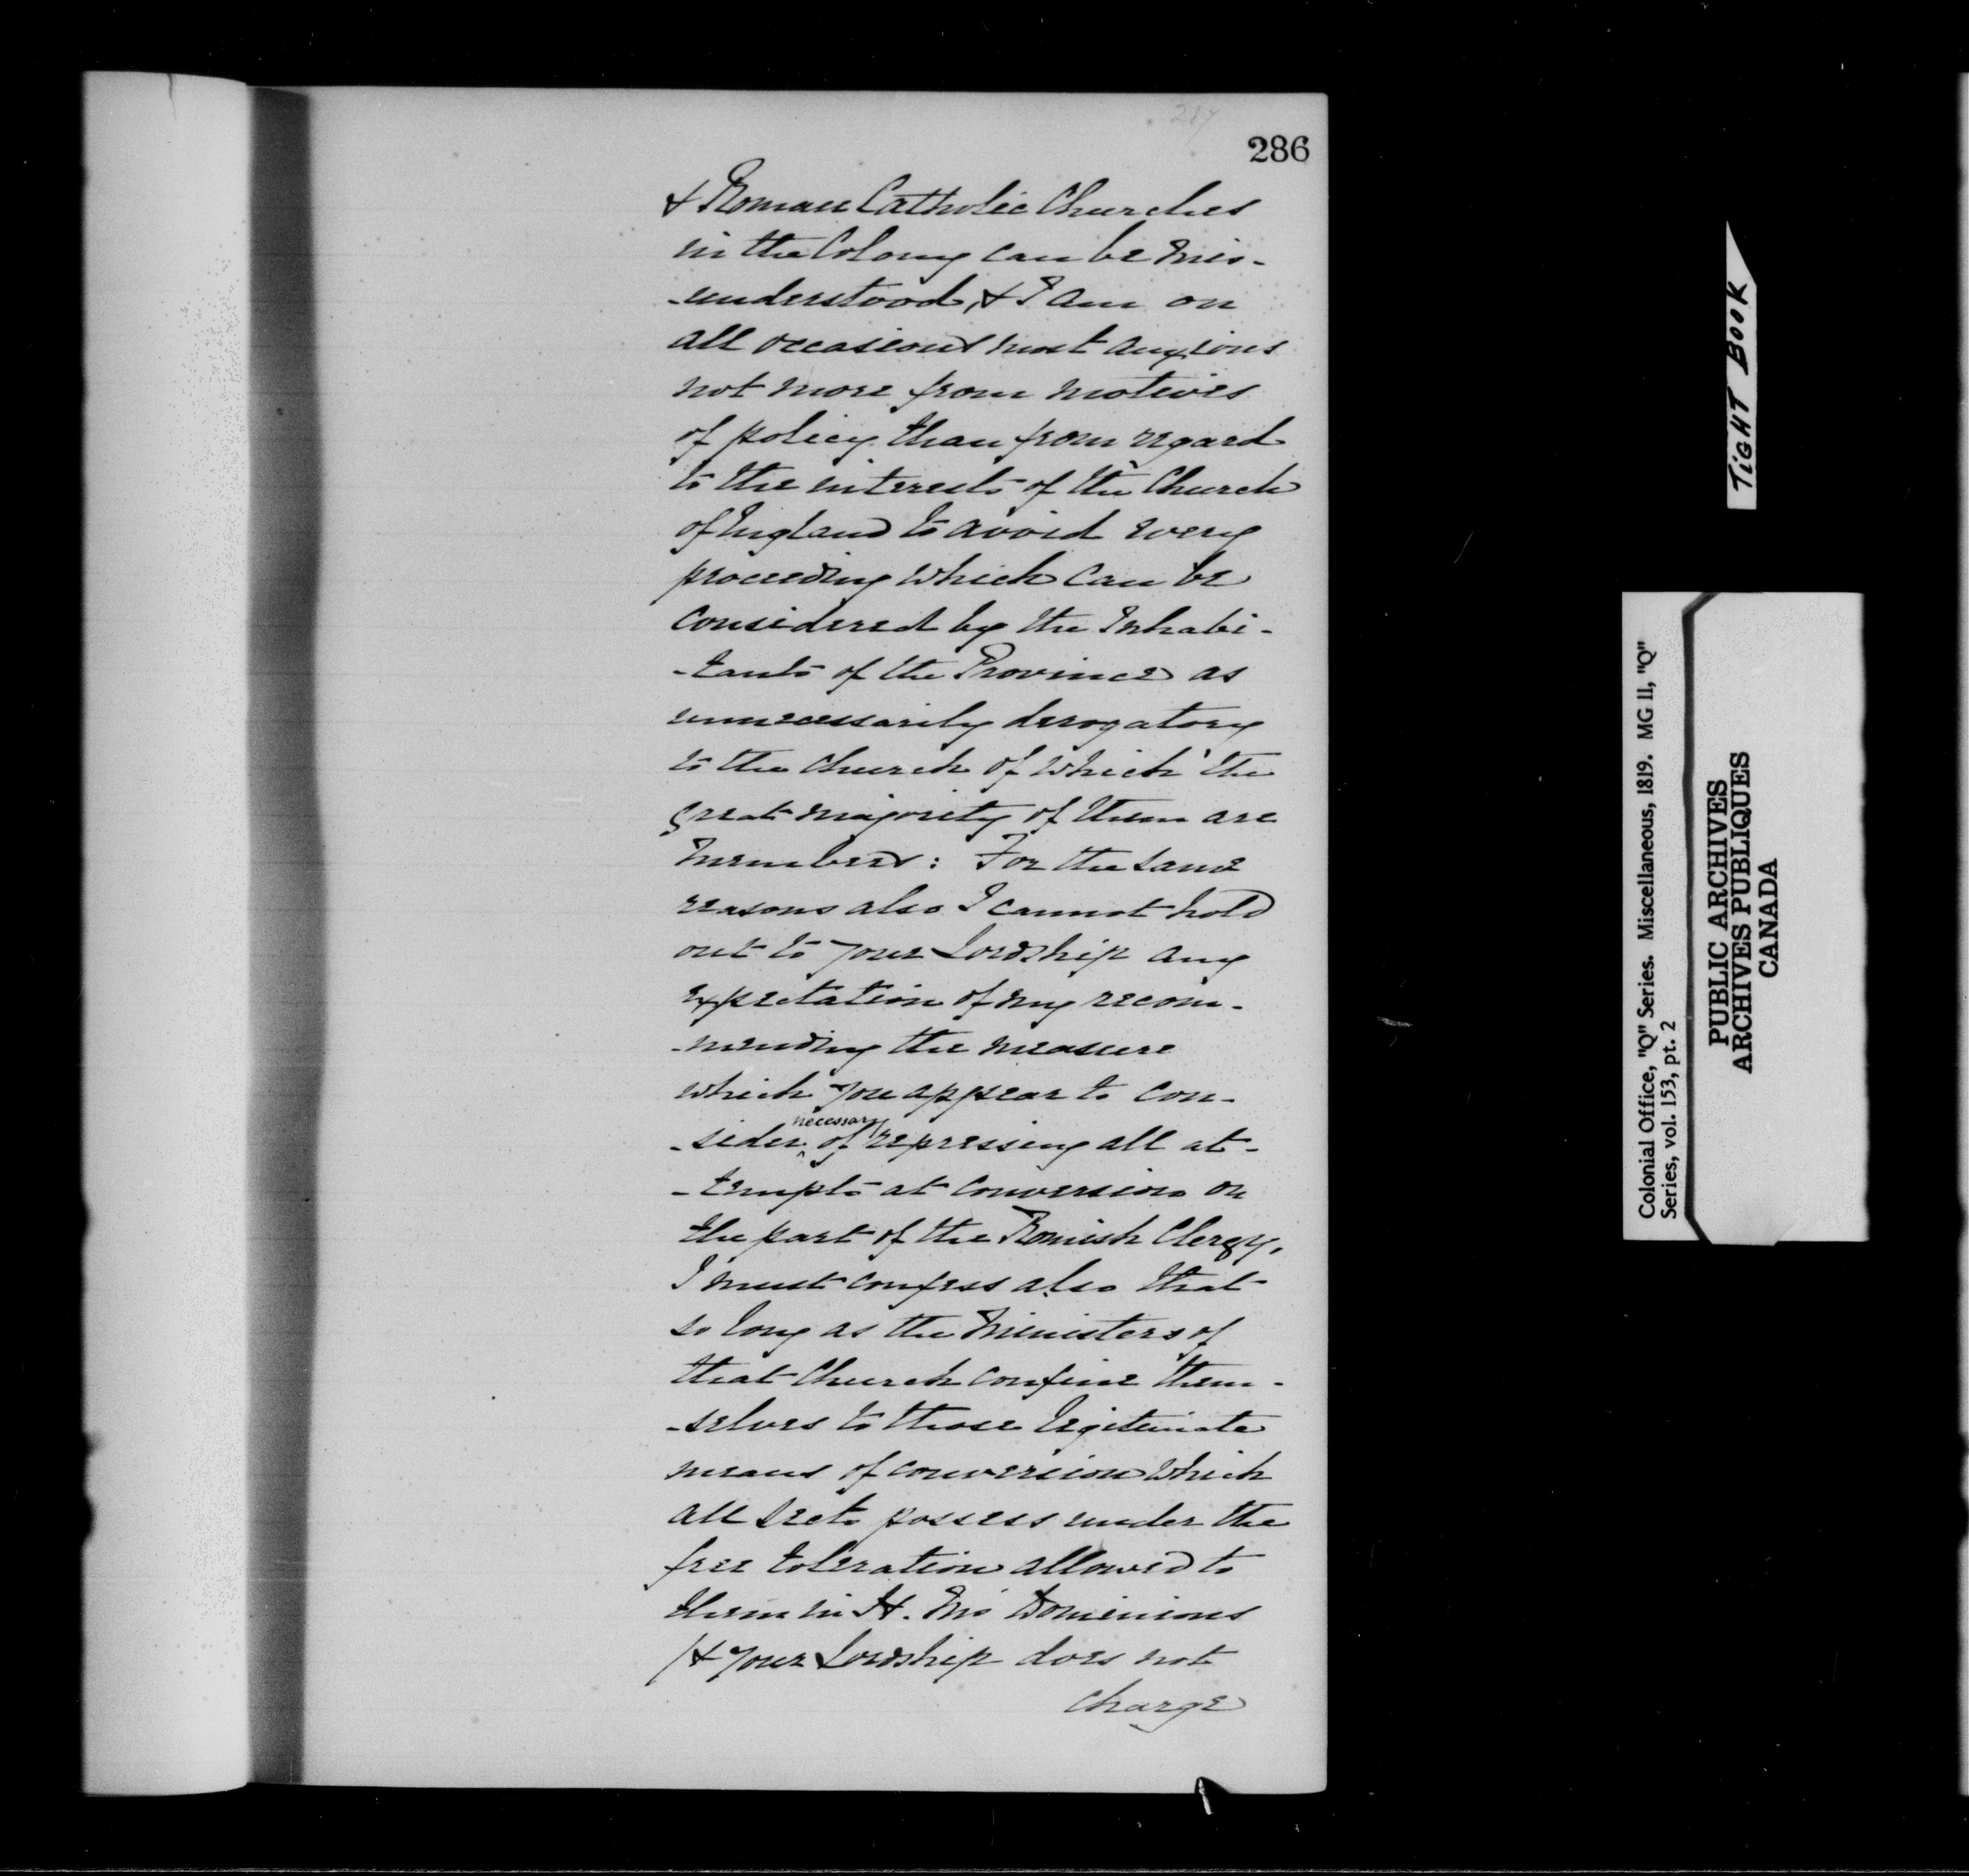 286
& Roman Catholic Churches
in the Colony can be mis-
-understood, & I am on
all occasions most anxious
not more from motives
of policy than from regard
to the interests of the Church
of England to avoid every
proceeding which can be
considered by the Inhabi-
-tants of the Province as
unnecessarily derogatory
to the Church of which the
great majority of them are
Members: For the same
reasons also I cannot hold
out to your Lordship any
expectation of my recom-
-mending the measure
which you appear to con-
necessary
-sider of repressing all at-
-tempts at conversion on
the part of the Romish Clergy,
I must confess also that
so long as the Ministers of
that Church confine them-
-selves to those legitimate
means of conversion which
all sects possess under the
free toleration allowed to
them in H. M's Dominions
(& your Lordship does not
charge
TIGHT BOOK
Colonial Office, "Q" Series. Miscellaneous, 1819. MG 11, "Q"
Series, vol. 153, pt. 2
PUBLIC ARCHIVES
ARCHIVES PUBLIQUES
CANADA